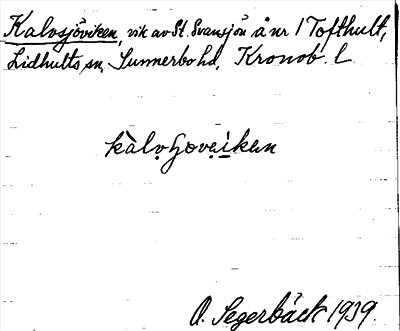 Kalvsjöviken, vik av St. Svansjön å nr 1 Tofthult,
Lidhults sn, Sunnerbo hd, Kronob. l.
kàlvɧøvı̣kən
O. Segerbäck 1939.